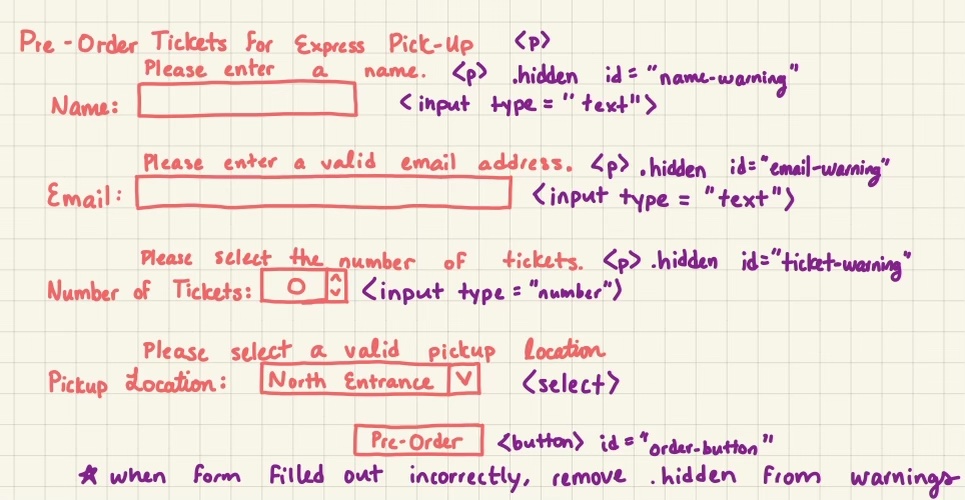 Pre-Order Tickets for Express Pick-Up <p>
Please enter a name. <p> .hidden id="name-warning"
Name: <input type="text">
Please enter a valid email address. <p> .hidden id="email-warning"
Email: <input type="text">
Please select the number of tickets. <p> .hidden id="ticket-warning"
Number of Tickets: 0 <input type="number">
Please select a valid pickup location
Pickup Location: North Entrance <select>
Pre-Order <button> id="order-button"
☆ when form filled out incorrectly, remove .hidden from warnings